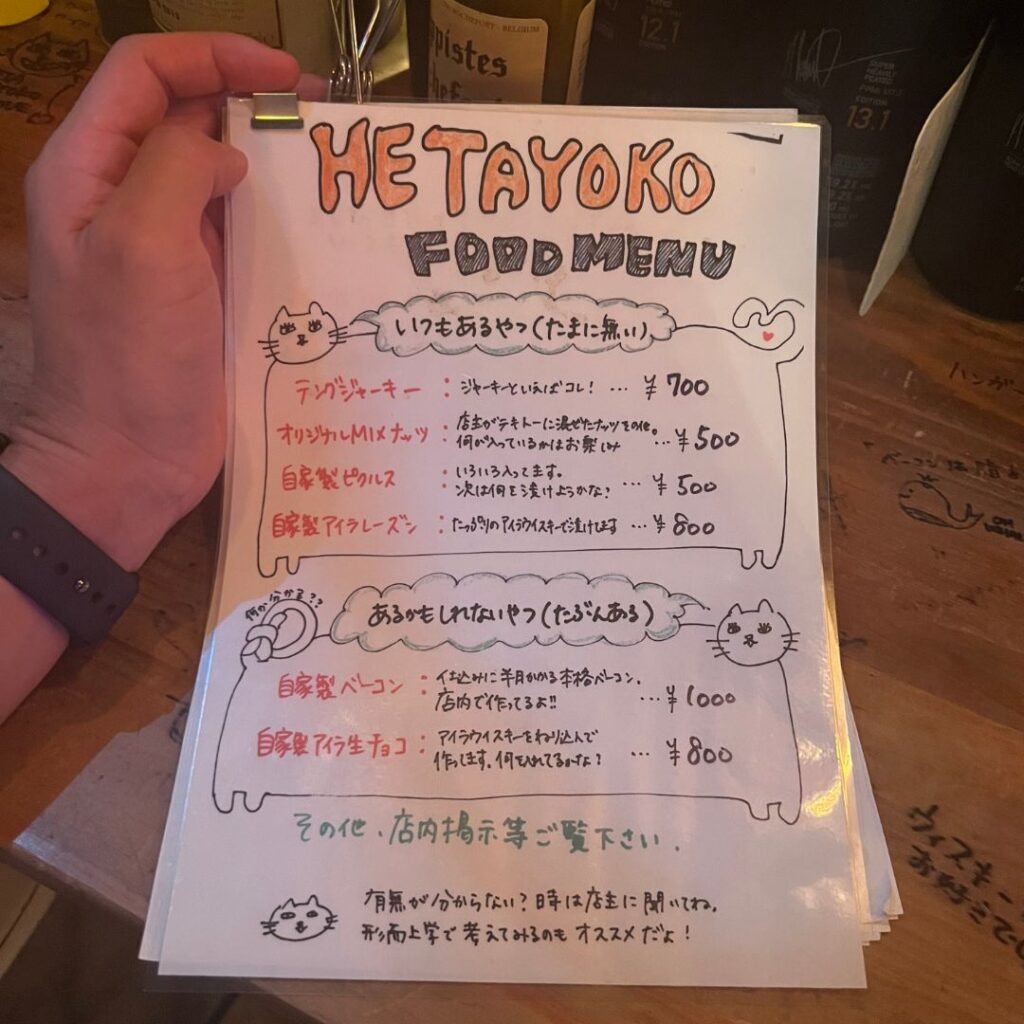 ROCHEFORT - BELGIUM
pistes
12.1
SUPER
HEAVILY
PEATED
EDITION
13.1
HETAYOKO
FOOD MENU
いつもあるやつ(たまに無い)
テングジャーキー : ジャーキーといえばコレ! … ¥700
オリジナルMIXナッツ : 店主がテキトーに混ぜたナッツその他。
何が入っているかはお楽しみ … ¥500
自家製ピクルス : いろいろ入ってます。
次は何を漬けようかな? … ¥500
自家製アイラレーズン : たっぷりのアイラウイスキーで漬けてます … ¥800
何か分かる??
あるかもしれないやつ(たぶんある)
自家製ベーコン : 仕込みに半月かかる本格ベーコン。
店内で作ってるよ!! … ¥1000
自家製アイラ生チョコ : アイラウイスキーをねり込んで
作ってます。何を入れてるかな? … ¥800
その他、店内掲示等ご覧下さい.
有無が分からない?時は店主に聞いてね。
形而上学で考えてみるのもオススメだよ!
ハンガー